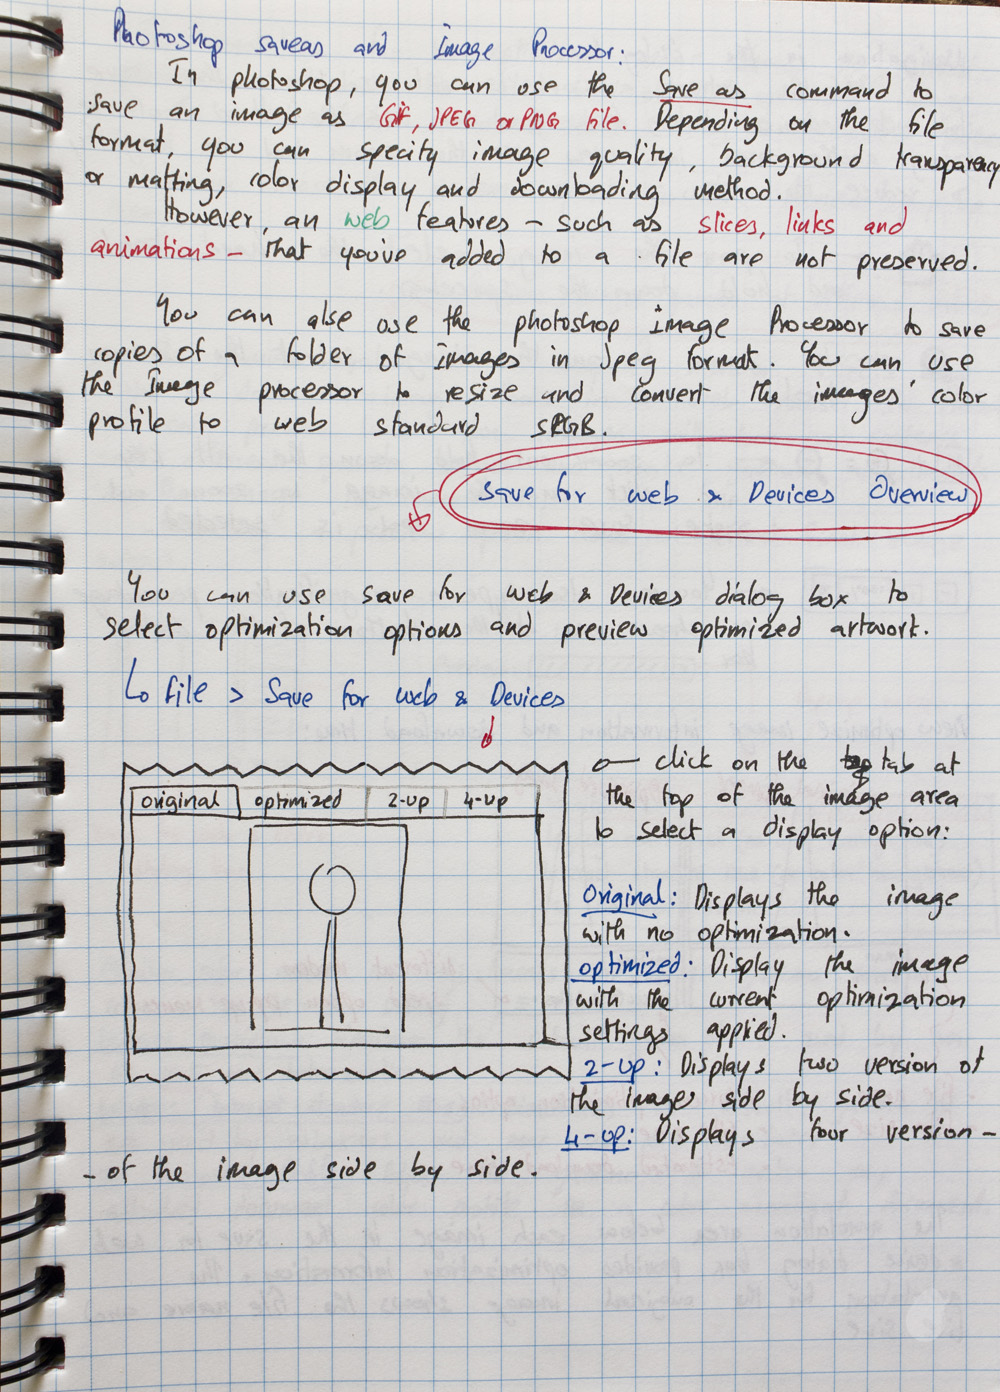 Photoshop saveas and Image Processor:
In photoshop, you can use the Save as command to
save an image as Gif, JPEG or PNG file. Depending on the file
format, you can specify image quality, background transparency
or matting, color display and downloading method.
However, an web features – such as slices, links and
animations – that you've added to a file are not preserved.
You can also use the photoshop Image Processor to save
copies of a folder of Images in Jpeg format. You can use
the Image processor to resize and convert the images' color
profile to web standard sRGB.
Save for web & Devices Overview
You can use save for web & Devices dialog box to
select optimization options and preview optimized artwork.
File > Save for web & Devices
original optimized 2-up 4-up
click on the tab at
the top of the image area
to select a display option:
Original: Displays the image
with no optimization.
optimized: Display the image
with the current optimization
settings applied.
2-up: Displays two version of
the images side by side.
4-up: Displays four version –
– of the image side by side.